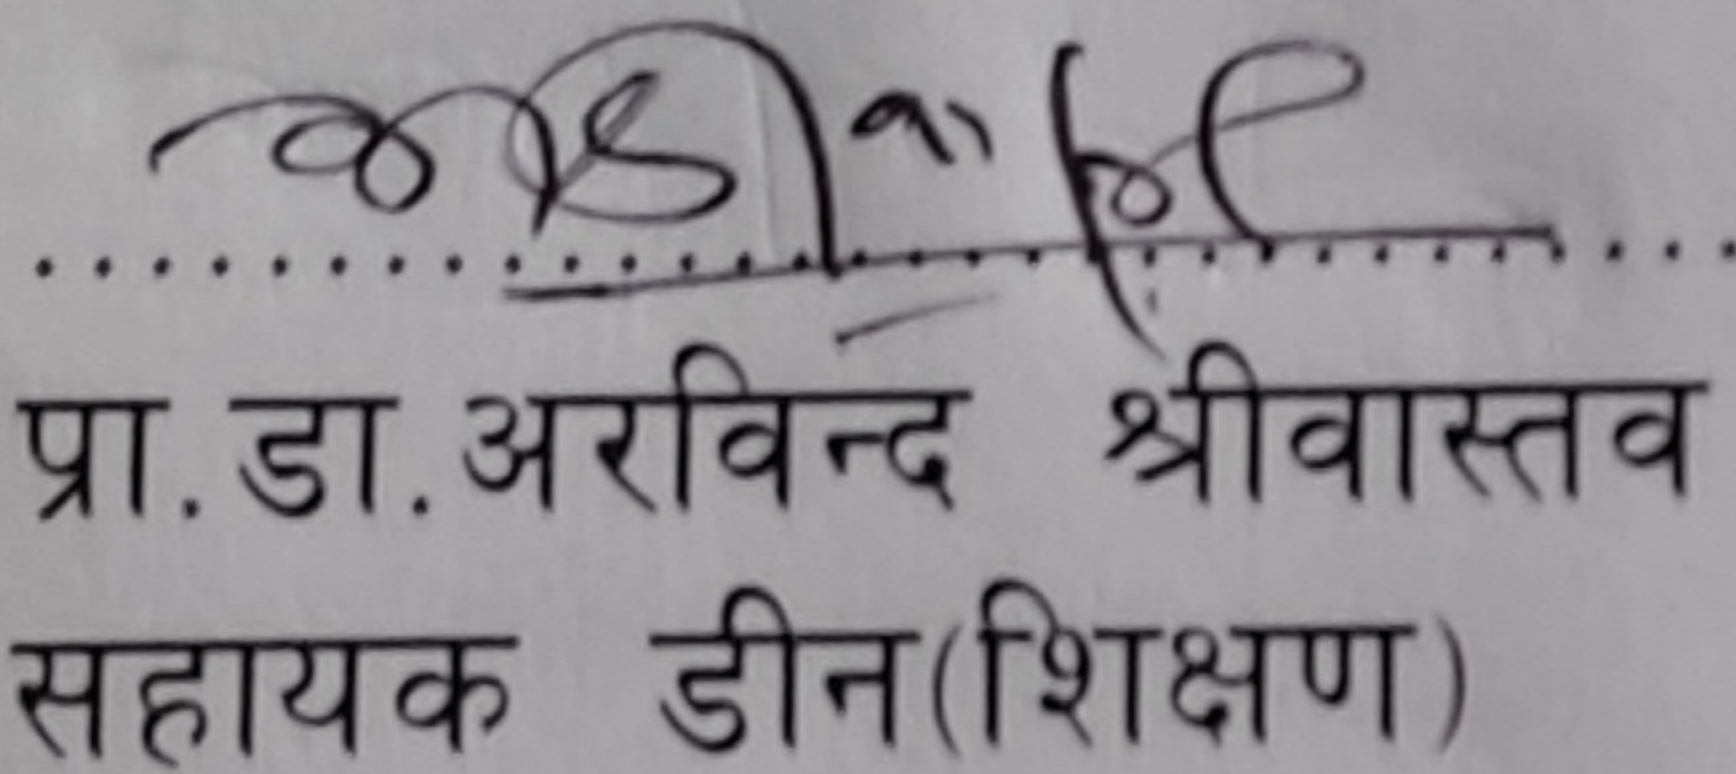 प्रा.डा.अरविन्द श्रीवास्तव
सहायक डीन(शिक्षण)